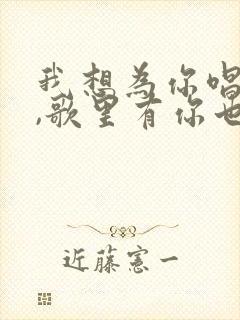 我想为你唱
,歌里有你也
近藤憲一